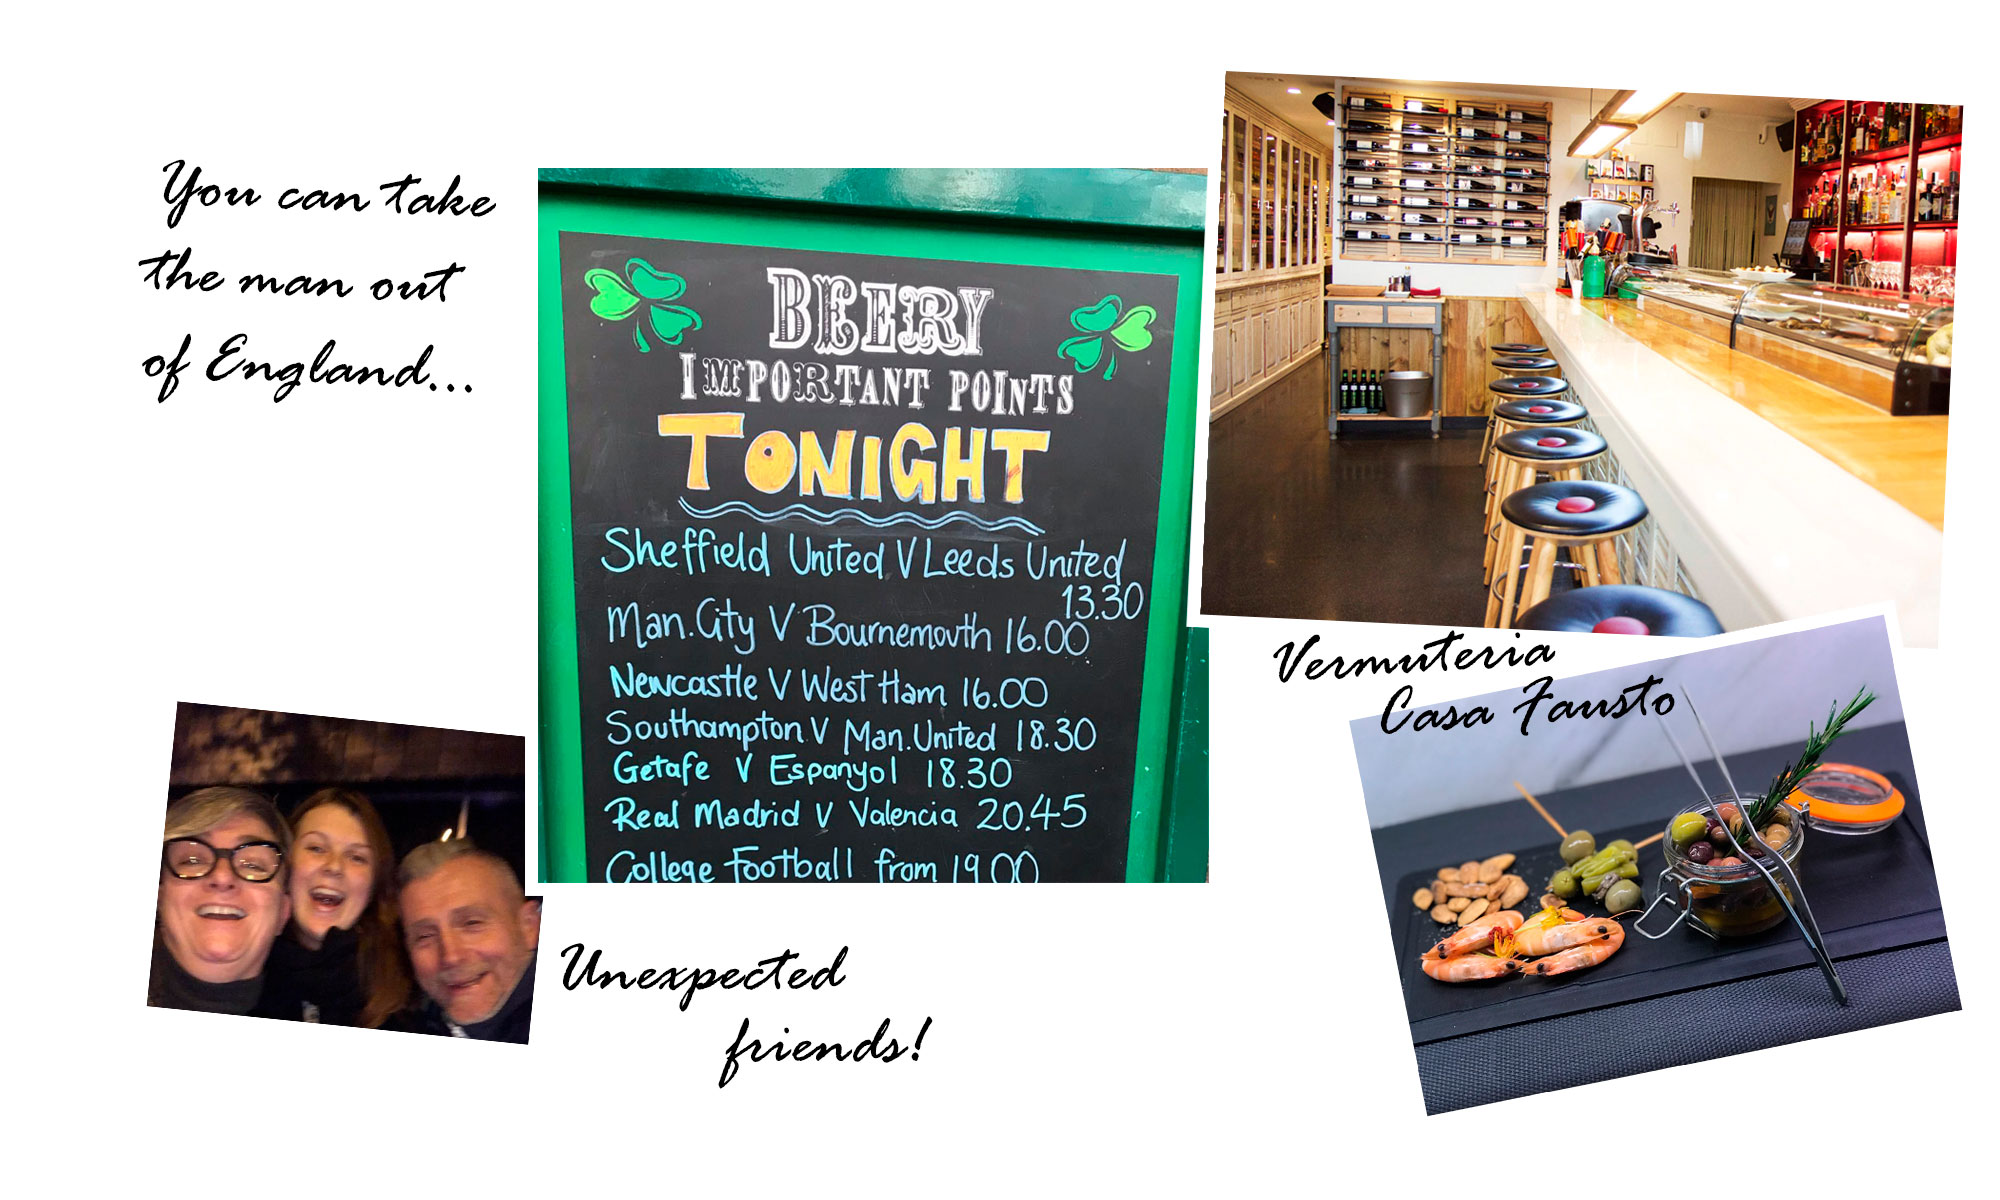 You can take
the man out
of England...
BEERY
IMPORTANT POINTS
TONIGHT
Sheffield United V Leeds United
13.30
Man. City V Bournemouth 16.00
Newcastle V West Ham 16.00
Southampton V Man. United 18.30
Getafe V Espanyol 18.30
Real Madrid V Valencia 20.45
College Football from 19.00
Vermuteria
Casa Fausto
Unexpected
friends!